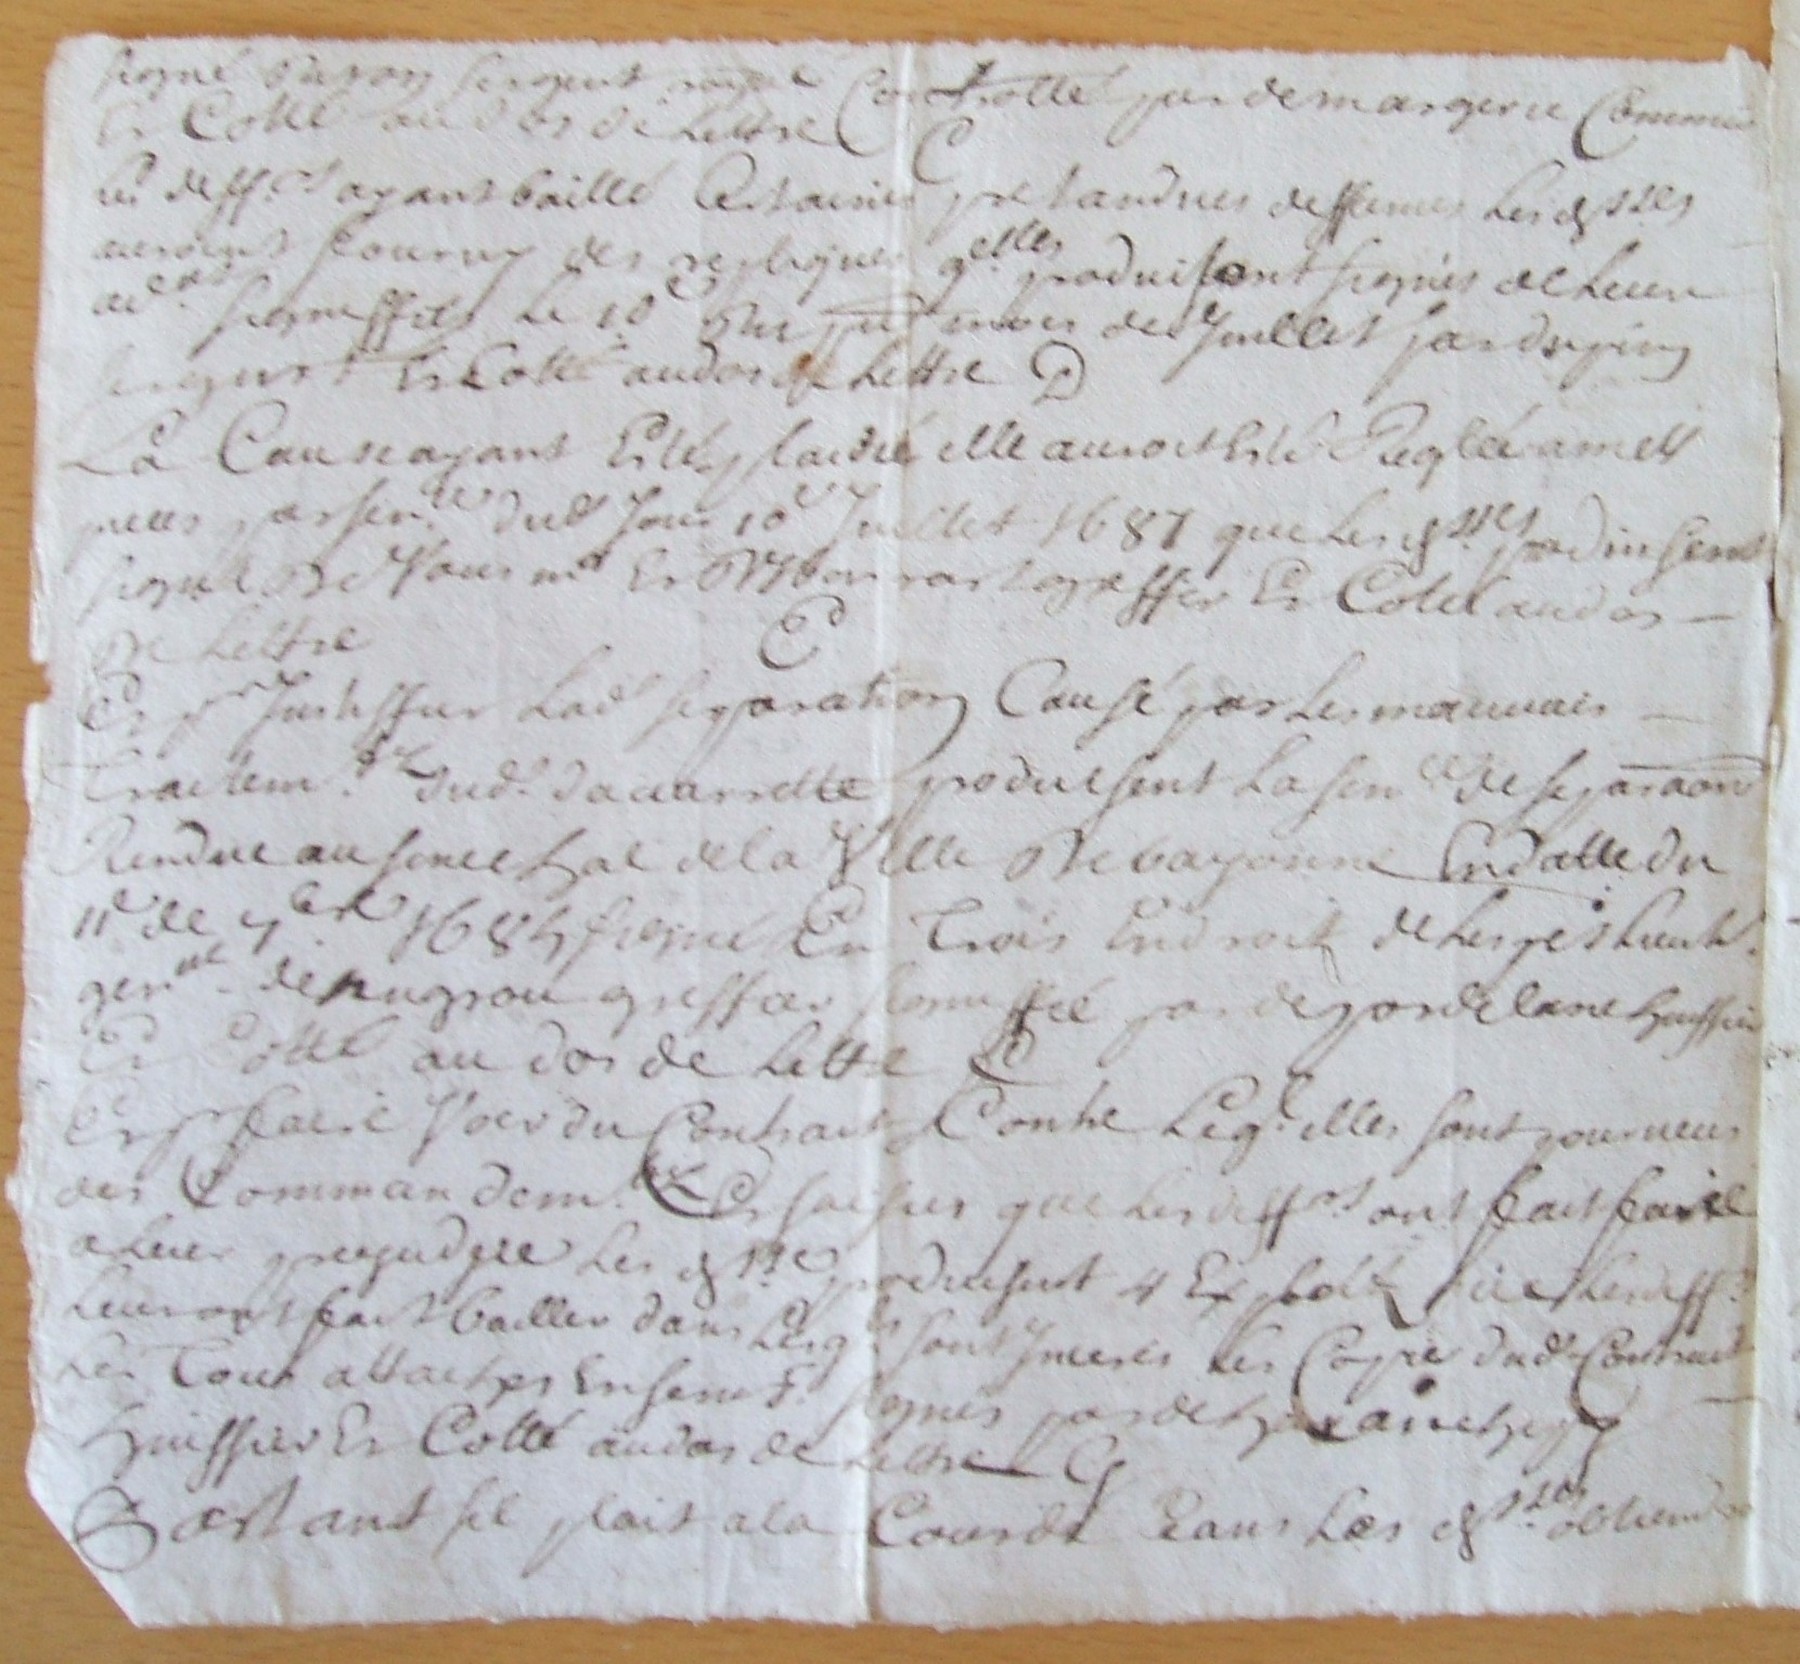 signé Baron sergent royal Controllé par demargerie Commis
Et Cotté au dos de Lettre C
Les deff.rs ayant baillé Certaines pretandues deffences Les d.lles
auroint fourny des repliques q'elles produisent signés de Leur
adt signiffies Le 10e du pnt mois de Juillet par dupin
sergent Et Cotté au dos de Lettre D
La Cause ayant Esté plaidée elle auroit Esté Reglée a mett
par sen.ce dud Jour 10e Juillet 1687 que Les d.lles produisent
signé greffier Et Cotté au dos
De Lettre E
Et pr Justiffier Lad separation Causé par Les mauvais
Traitem.ts dud. daccarrette produisent La sen.ce de separaon
Rendue au senechal de la Ville De bayonne En datte du
11e de 7bre 1684 signé En Trois Endroits de Lespés Lieut.
gen.al denugrou greffier signiffié par de gardelane huissier
Et Cotté au dos de Lettre F
Et pr faire Voir du Contrait Contre Leq.l elles sont pourveues
des Commandem.ts Et saisies que Les deff.rs ont fait faire
a Leur prejudice Les d.lles produisent 4 Exploits que Les deff.rs
Leur ont fait bailler dans Lesq.ls sont Inceres Les Copie dud Contrait
Les Tous attachés Ensem.e signés par de
huissier Et Cotté au dos de Lettre G
Partant sil plait a la Cour de Ceans Les d.lles obtiendr